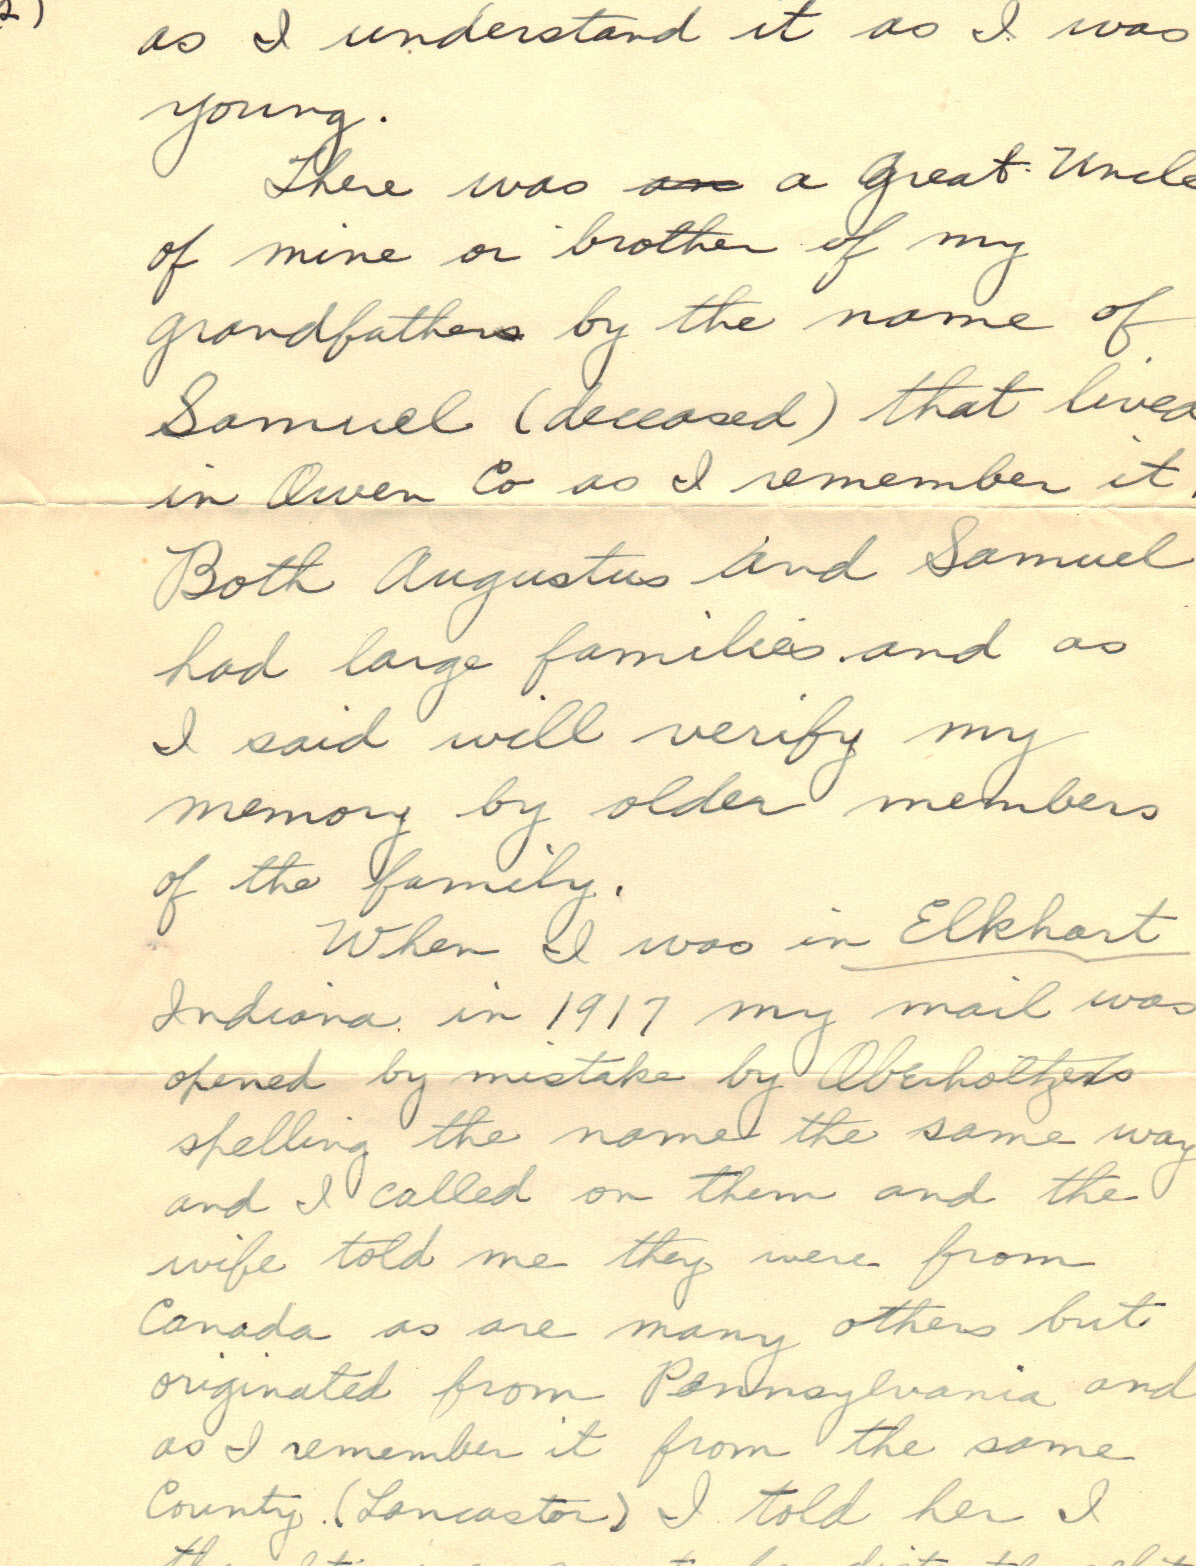 2)
as I understand it as I was
young.
There was an a great Uncle
of mine or brother of my
grandfathers by the name of
Samuel (deceased) that lived
in Owen Co as I remember it.
Both Augustus and Samuel
had large families and as
I said will verify my
memory by older members
of the family.
When I was in Elkhart
Indiana in 1917 my mail was
opened by mistake by Oberholtzers
spelling the name the same way
and I called on them and the
wife told me they were from
Canada as are many others but
originated from Pennsylvania and
as I remember it from the same
County (Lancaster) I told her I